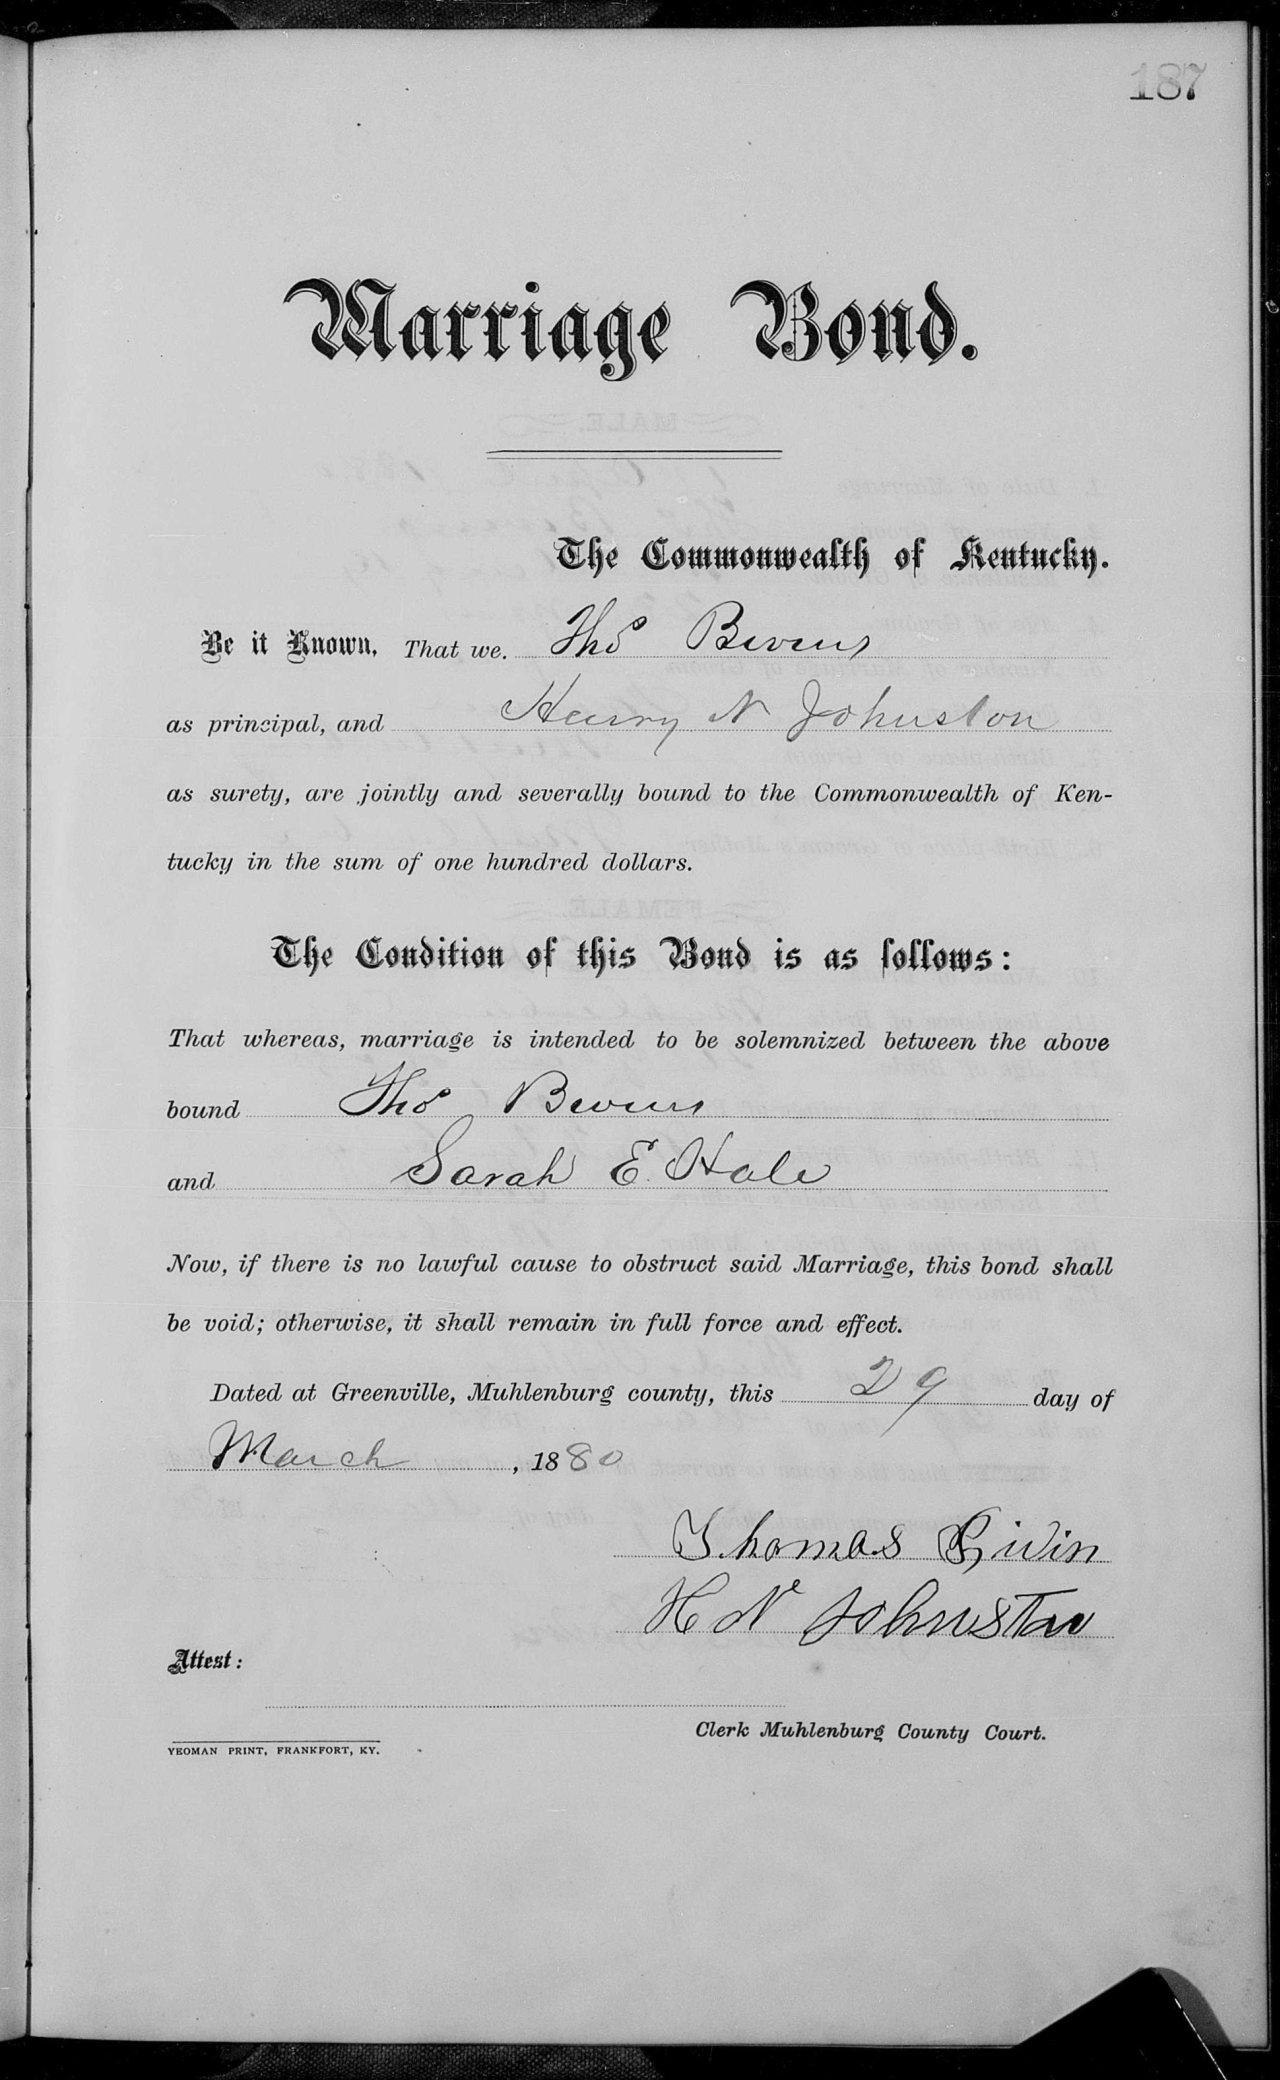 187
Marriage Bond.
The Commonwealth of Kentucky.
Be it Known, That we, Thos Bivins
as principal, and Henry N Johnston
as surety, are jointly and severally bound to the Commonwealth of Ken-
tucky in the sum of one hundred dollars.
The Condition of this Bond is as follows:
That whereas, marriage is intended to be solemnized between the above
bound Thos Bivins
and Sarah E. Hale
Now, if there is no lawful cause to obstruct said Marriage, this bond shall
be void; otherwise, it shall remain in full force and effect.
Dated at Greenville, Muhlenburg county, this 29 day of
March, 1880
Thomas Bivin
H N Johnston
Attest:
Clerk Muhlenburg County Court.
YEOMAN PRINT, FRANKFORT, KY.